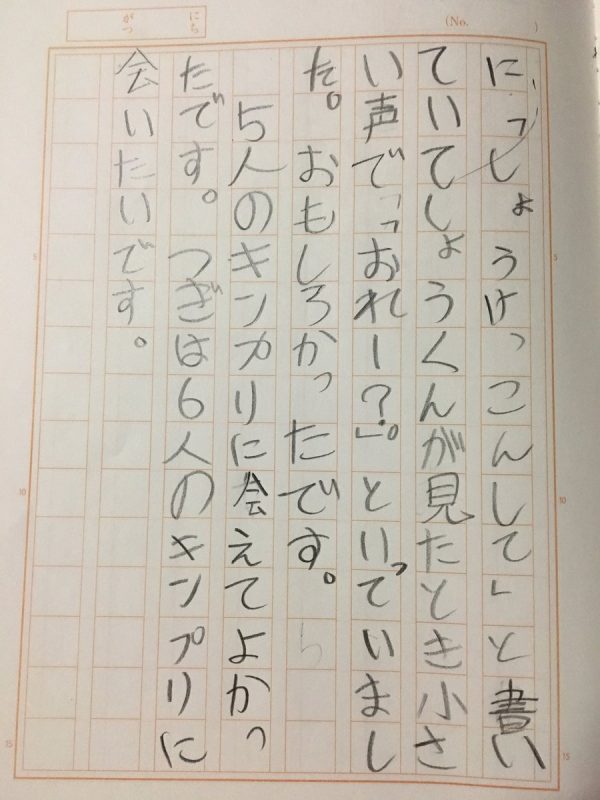 にち
がつ
(No. )
に、「しょうけっこんして」と書い
ていてしょうくんが見たとき小さ
い声で「おれー?」。といっていまし
た。おもしろかったです。
5人のキンカリに会えてよかっ
たです。つぎは6人のキンプリに
会いたいです。
5
10
15
5
10
15